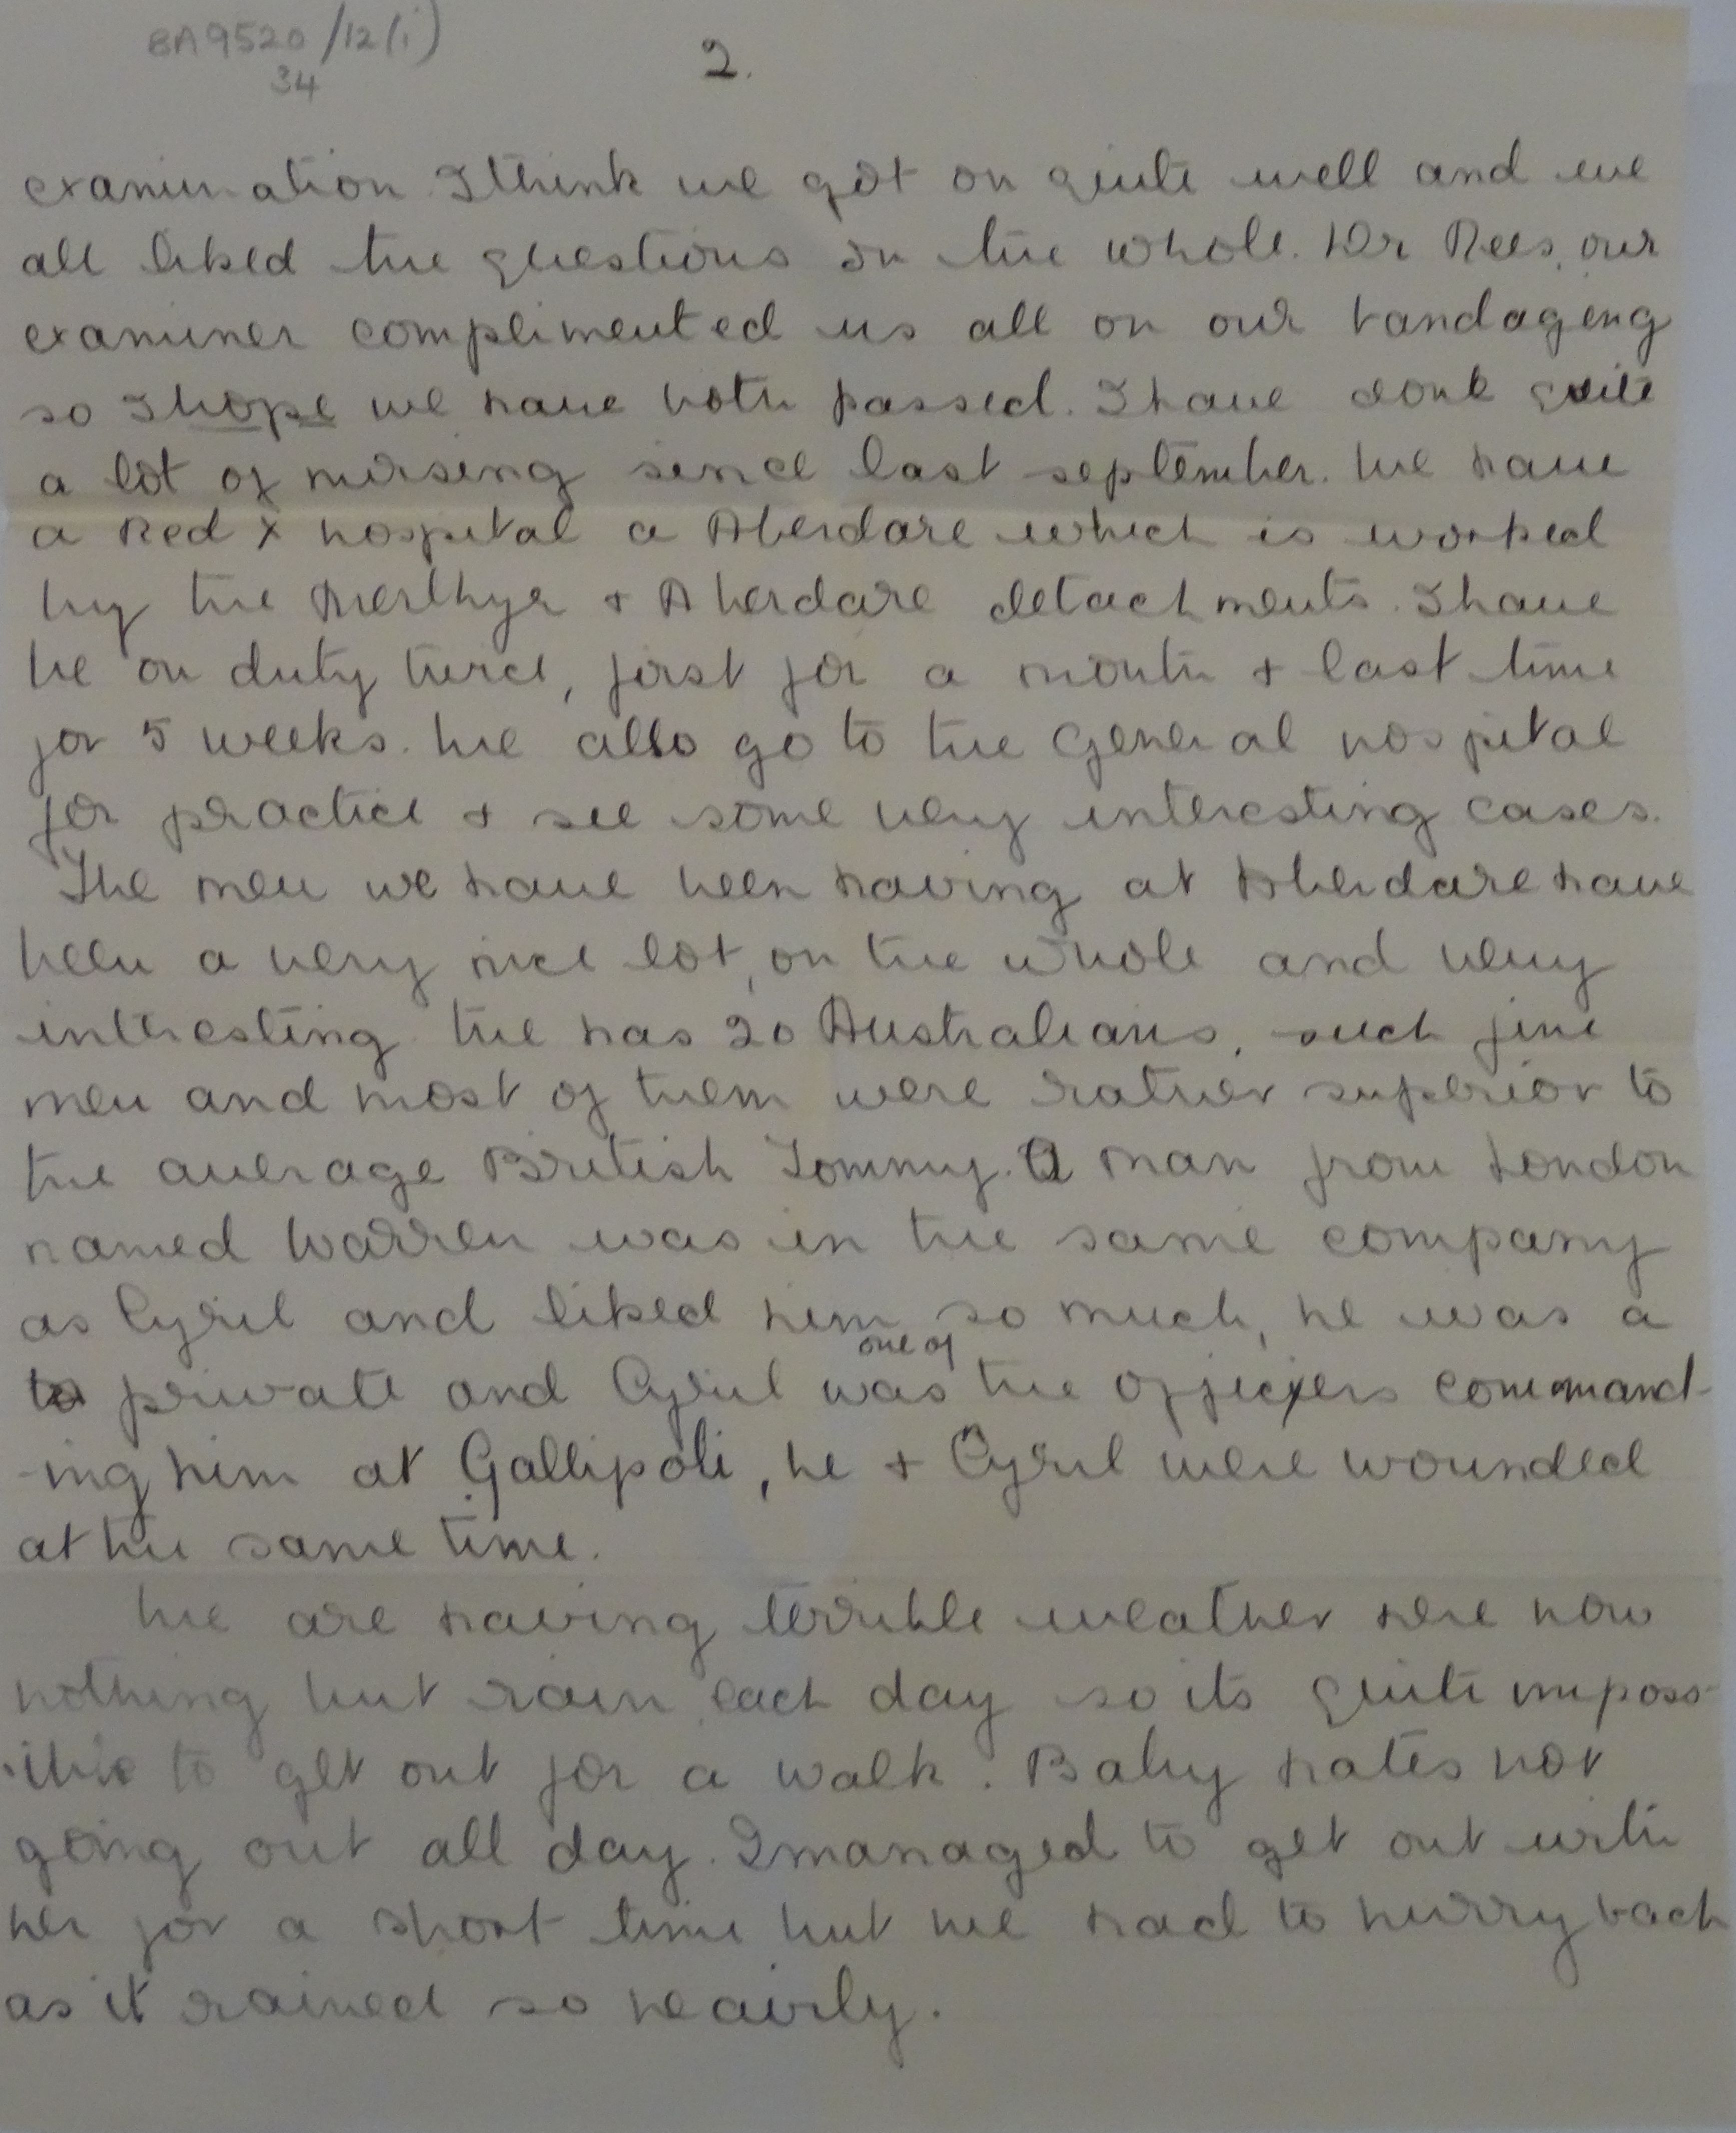 BA9520/12(i)
34
2.
examination I think we got on quite well and we
all liked the questions on the whole. Dr Rees, our
examiner complimented us all on our bandaging
so I hope we have both passed. I have done quite
a lot of nursing since last september. We have
a Red X hospital a Aberdare which is worked
by the Merthyr + Aberdare detachments. I have
be on duty twice, first for a month + last time
for 5 weeks. We also go to the General hospital
for practice + see some very interesting cases.
The men we have been having at Aberdare have
been a very nice lot, on the whole and very
interesting. We has 20 Australians, such fine
men and most of them were rather superior to
the average British Tommy. A man from London
named Warren was in the same company
as Cyril and liked him so much, he was a
one of
private and Cyril was the officers command-
-ing him at Gallipoli, he + Cyril were wounded
at the same time.
We are having terrible weather here now
nothing but rain each day so its quite imposs-
-ible to get out for a walk. Baby hates not
going out all day. I managed to get out with
her for a short time but we had to hurry back
as it rained so heavily.